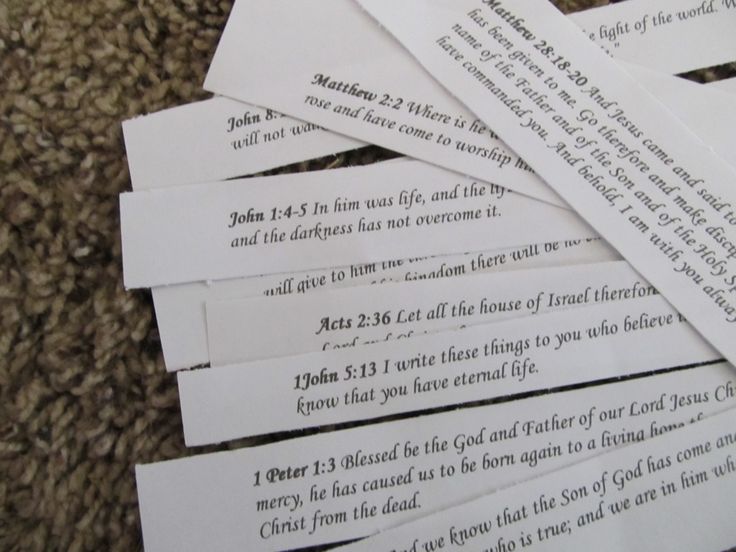 e light of the world. W
Matthew 28:18-20 And Jesus came and said to
has been given to me. Go therefore and make discip
name of the Father and of the Son and of the Holy Sp
have commanded you. And behold, I am with you alway
Matthew 2:2 Where is he w
rose and have come to worship hi
John 8:
will not wa
John 1:4-5 In him was life, and the li
and the darkness has not overcome it.
will give to him the
kingdom there will be no
Acts 2:36 Let all the house of Israel therefor
Lord and
1John 5:13 I write these things to you who believe
know that you have eternal life.
1 Peter 1:3 Blessed be the God and Father of our Lord Jesus Ch
mercy, he has caused us to be born again to a living hope
Christ from the dead.
nd we know that the Son of God has come an
who is true; and we are in him wh